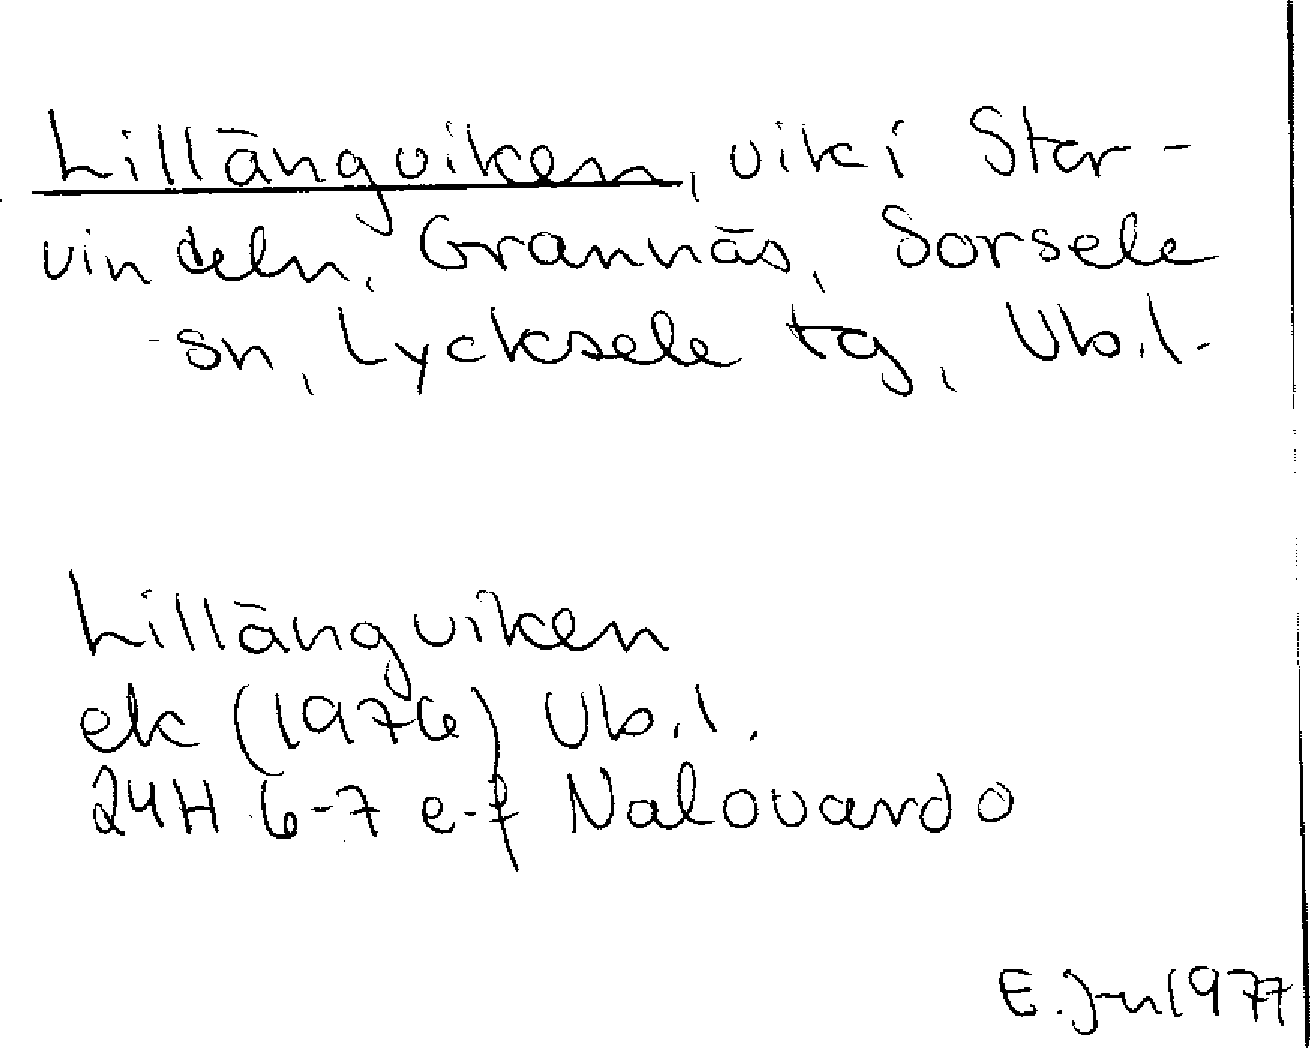 Lillängviken, vik i Stor-
vindeln, Grannäs, Sorsele
sn, Lycksele tg, Vb.l.
Lillängviken
ek (1976) Vb.l.
24H 6-7 e-f Nalovardo
E. J-n 1977